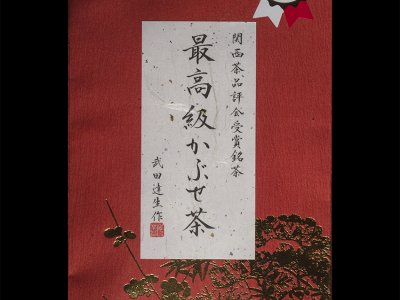 関西茶品評会受賞銘茶
最高級かぶせ茶
武田達生作